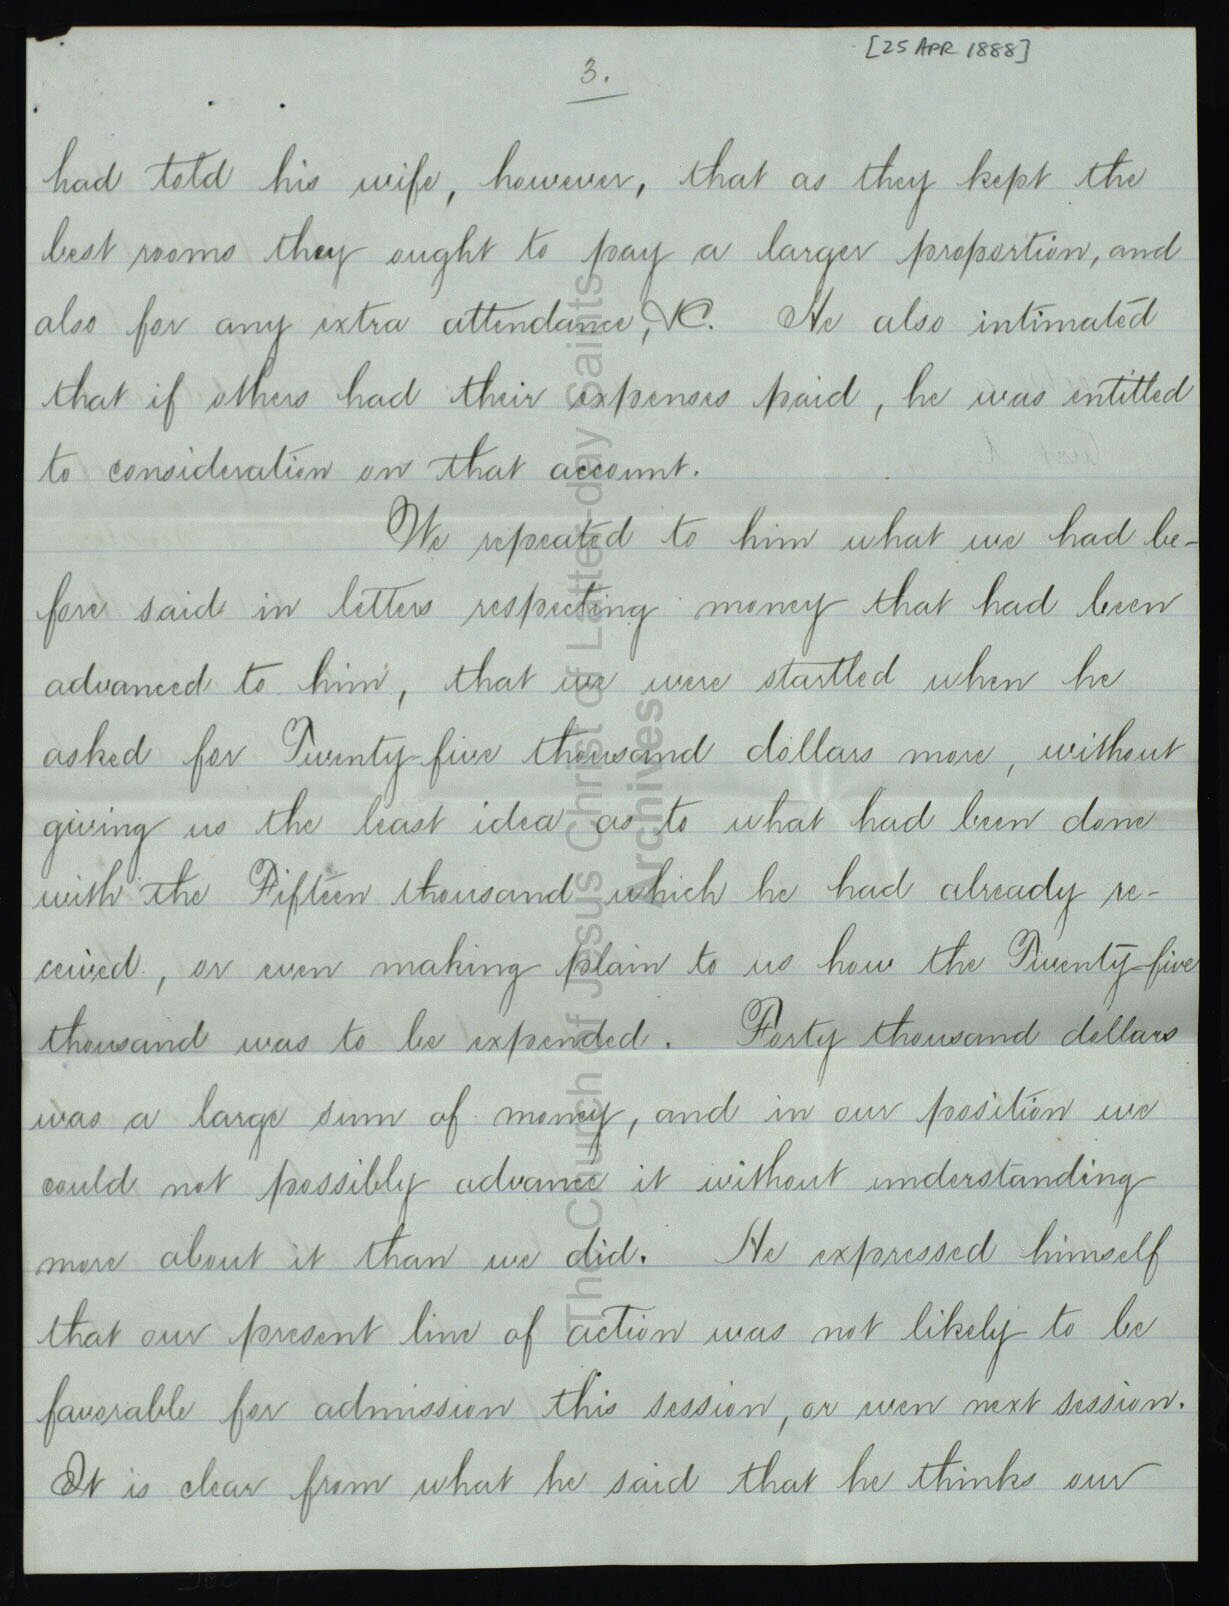 [25 APR 1888]
3.
had told his wife, however, that as they kept the
best rooms they ought to pay a larger proportion, and
also for any extra attendance, &C. He also intimated
that if others had their expenses paid, he was entitled
to consideration on that account.
We repeated to him what we had be-
fore said in letters respecting money that had been
advanced to him, that we were startled when he
asked for Twenty-five thousand dollars more, without
giving us the least idea as to what had been done
with the Fifteen thousand which he had already re-
ceived, or even making plain to us how the Twenty-five
thousand was to be expended. Forty thousand dollars
was a large sum of money, and in our position we
could not possibly advance it without understanding
more about it than we did. He expressed himself
that our present line of action was not likely to be
favorable for admission this session, or even next session.
It is clear from what he said that he thinks our
The Church of Jesus Christ of Latter-day Saints
Archives